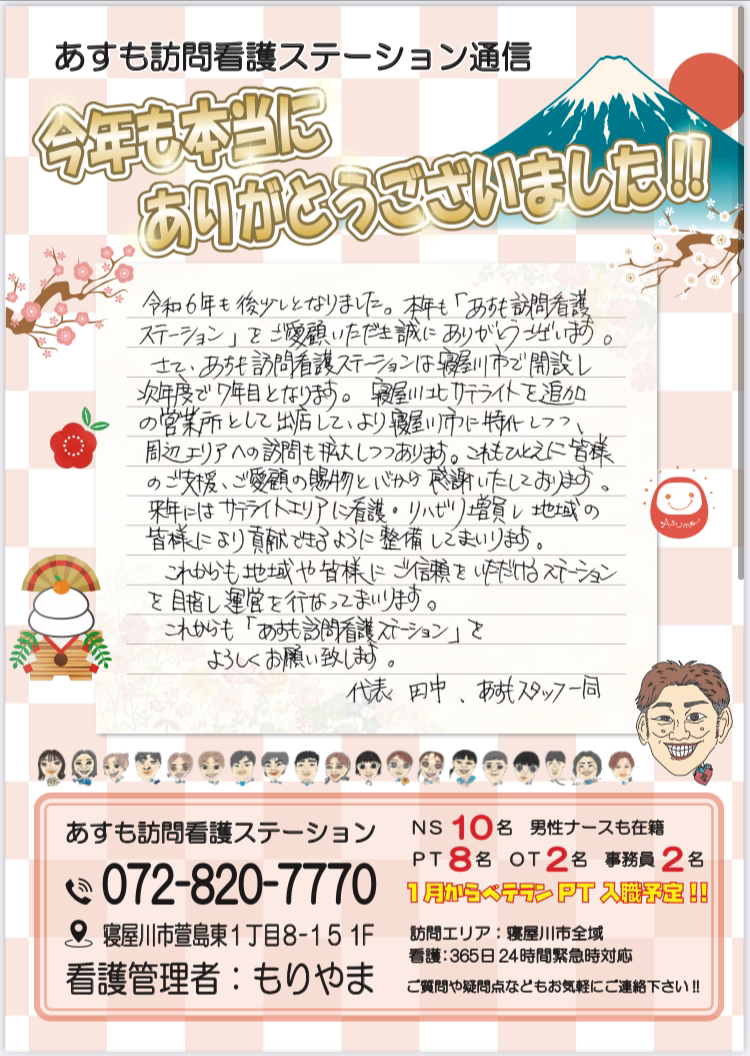 あすも訪問看護ステーション通信
今年も本当に
ありがとうございました!!
令和6年も後少しとなりました。本年も「あすも訪問看護
ステーション」をご愛顧いただき誠にありがとうございます。
さて、あすも訪問看護ステーションは寝屋川市で開設し
次年度で7年目となります。寝屋川北サテライトを追加
の営業所として出店して、より寝屋川市に特化しつつ、
周辺エリアへの訪問も拡大しつつあります。これもひとえに皆様
のご支援、ご愛顧の賜物と心から感謝いたしております。
来年にはサテライトエリアに看護・リハビリ増員し地域の
皆様により貢献できるように整備してまいります。
これからも地域や皆様にご信頼をいただけるステーション
を目指し運営を行なってまいります。
これからも「あすも訪問看護ステーション」を
よろしくお願い致します。
代表 田中、あすもスタッフ一同
Asumo
あすも訪問看護ステーション
072-820-7770
寝屋川市萱島東1丁目8-15 1F
看護管理者:もりやま
NS 10名 男性ナースも在籍
PT 8名 OT 2名 事務員 2名
1月からベテランPT入職予定!!
訪問エリア:寝屋川市全域
看護:365日24時間緊急時対応
ご質問や疑問点などもお気軽にご連絡下さい!!